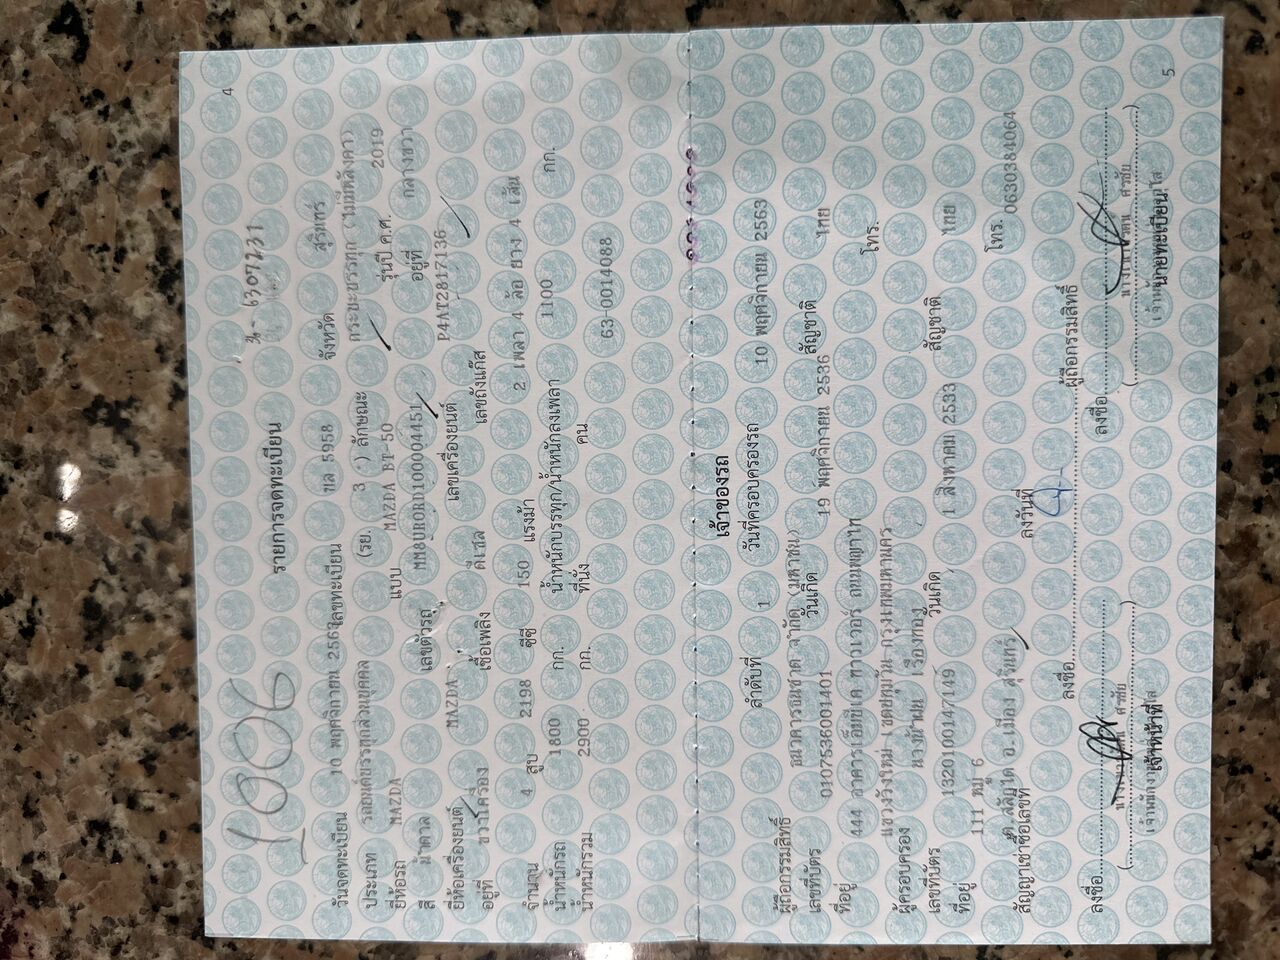 4
1006
3- 6307231
รายการจดทะเบียน
วันจดทะเบียน 10 พฤศจิกายน 2563 เลขทะเบียน ผล 5958 จังหวัด สุรินทร์
ประเภท รถยนต์บรรทุกส่วนบุคคล (รย. 3 ) ลักษณะ กระบะบรรทุก (ไม่มีหลังคา)
ยี่ห้อรถ MAZDA แบบ MAZDA BT-50 รุ่นปี ค.ศ. 2019
สี น้ำตาล เลขตัวรถ MM8URORD100004451 อยู่ที่ กลางขวา
ยี่ห้อเครื่องยนต์ MAZDA เลขเครื่องยนต์ P4AT2817136
อยู่ที่ ขวาเครื่อง เชื้อเพลิง ดีเซล เลขถังแก๊ส
จำนวน 4 สูบ 2198 ซีซี 150 แรงม้า 2 เพลา 4 ล้อ ยาง 4 เส้น
น้ำหนักรถ 1800 กก. น้ำหนักบรรทุก/น้ำหนักลงเพลา 1100 กก.
น้ำหนักรวม 2900 กก. ที่นั่ง คน
63-0014088
เจ้าของรถ
ลำดับที่ 1 วันที่ครอบครองรถ 10 พฤศจิกายน 2563
ผู้ถือกรรมสิทธิ์ ธนาคารธนชาต จำกัด (มหาชน)
เลขที่บัตร 0107536001401 วันเกิด 19 พฤศจิกายน 2536 สัญชาติ ไทย
ที่อยู่ 444 อาคารเอ็มบีเค ทาวเวอร์ ถนนพญาไท
แขวงวังใหม่ เขตปทุมวัน กรุงเทพมหานคร โทร.
ผู้ครอบครอง เรืองทอง
เลขที่บัตร 1320100147149 วันเกิด 1 สิงหาคม 2533 สัญชาติ ไทย
ที่อยู่ 111 หมู่ 6
อ.เมือง สุรินทร์ โทร. 0630384064
สัญญาเช่าซื้อเลขที่ ลงวันที่
ลงชื่อ ผู้ถือกรรมสิทธิ์
ลงชื่อ ลงชื่อ
เจ้าหน้าที่ นายทะเบียน
5